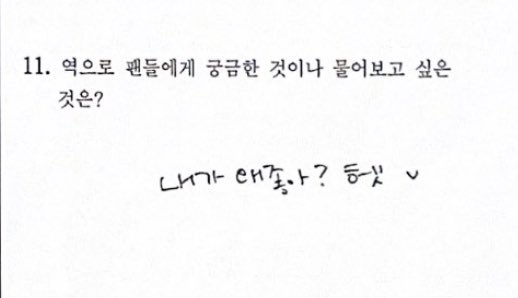 11. 역으로 팬들에게 궁금한 것이나 물어보고 싶은
것은?
내가 왜좋아? 헷 ᵕ